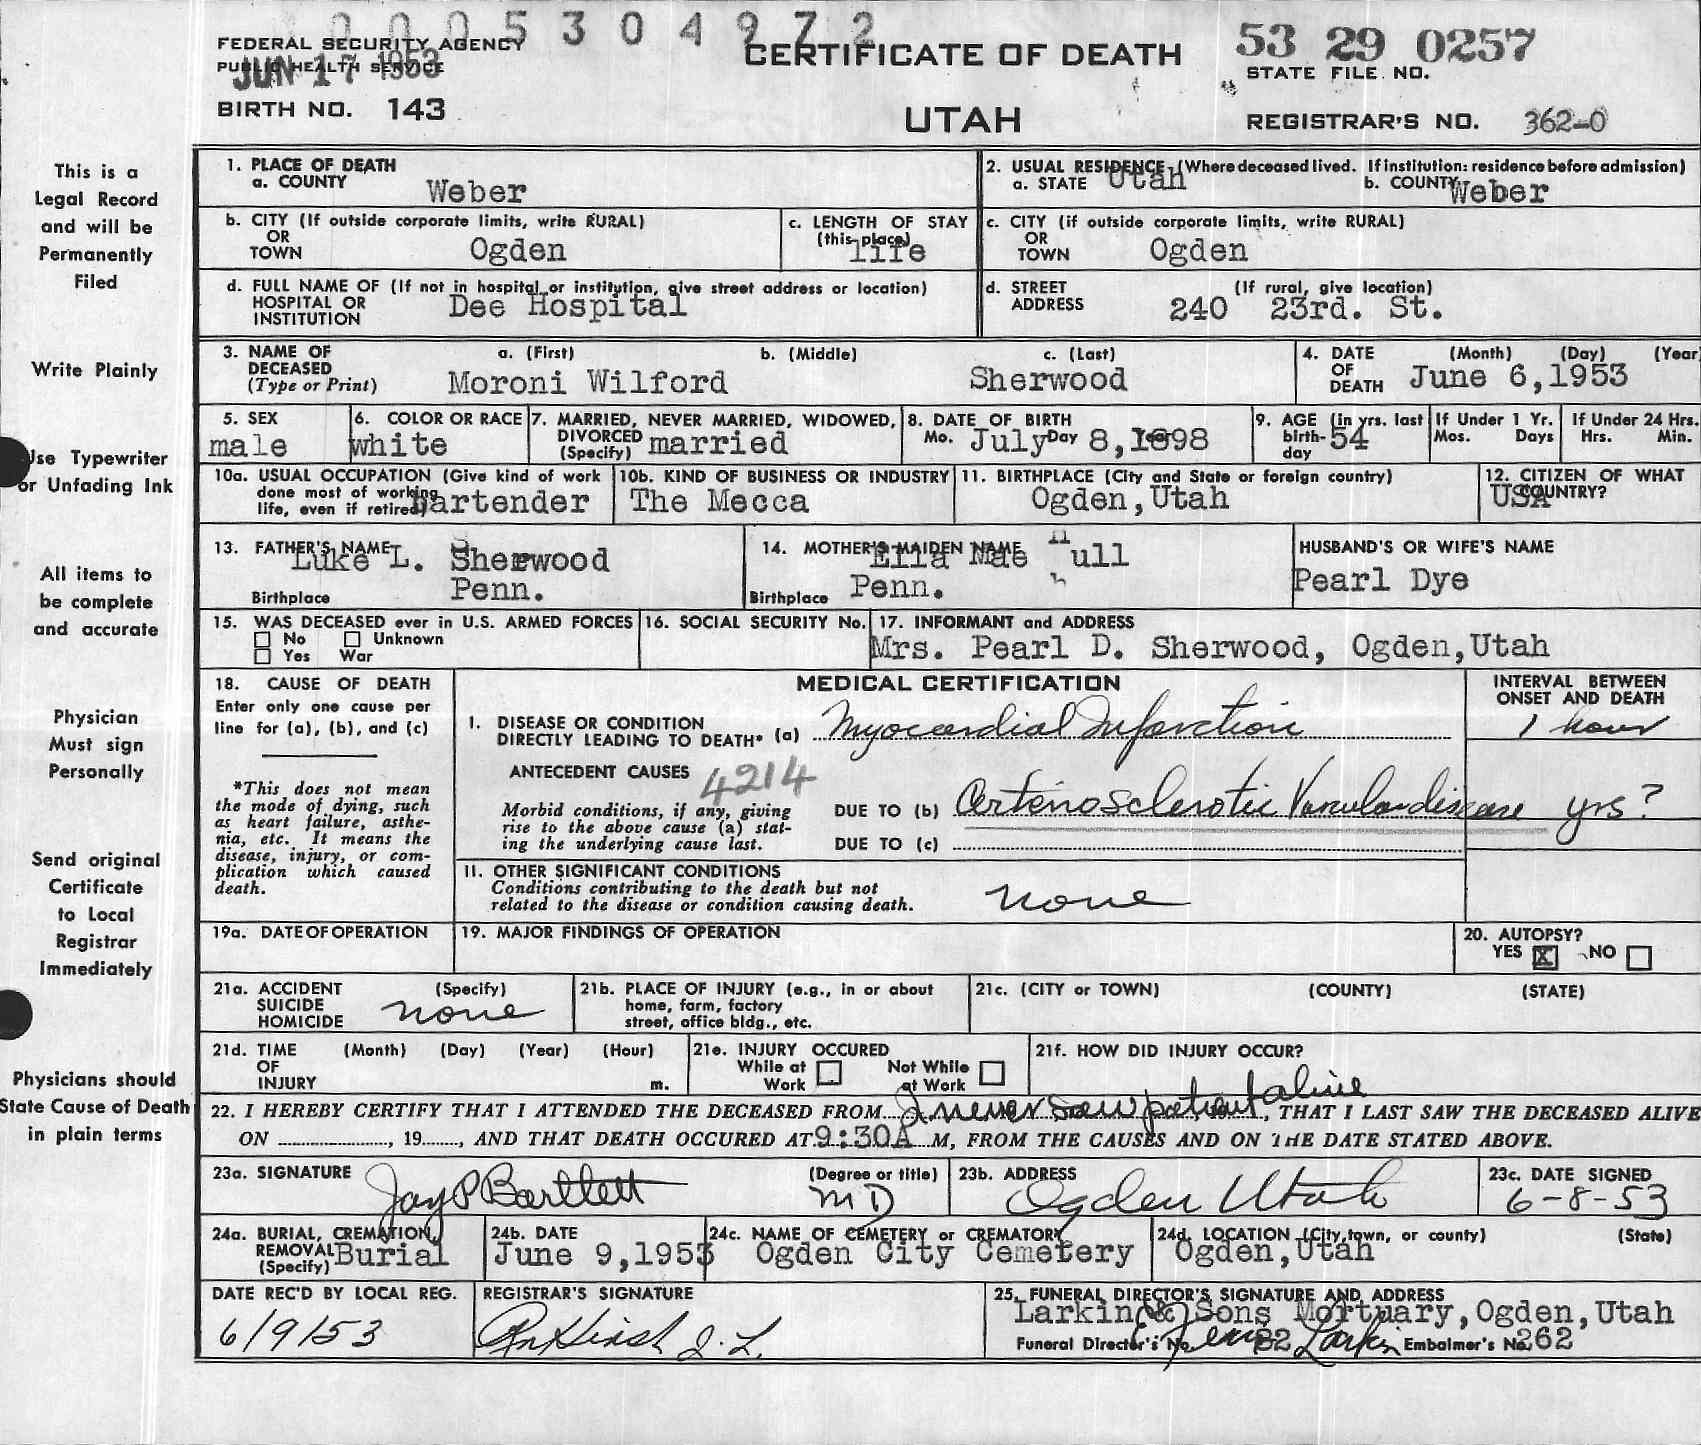 0005304972
FEDERAL SECURITY AGENCY
PUBLIC HEALTH SERVICE
JUN 17 1953
BIRTH NO. 143
CERTIFICATE OF DEATH
UTAH
53 29 0257
STATE FILE NO.
REGISTRAR'S NO. 362-0
This is a
Legal Record
and will be
Permanently
Filed
Write Plainly
Use Typewriter
or Unfading Ink
All items to
be complete
and accurate
Physician
Must sign
Personally
Send original
Certificate
to Local
Registrar
Immediately
Physicians should
State Cause of Death
in plain terms
1. PLACE OF DEATH
a. COUNTY Weber
2. USUAL RESIDENCE (Where deceased lived. If institution: residence before admission)
a. STATE Utah b. COUNTY Weber
b. CITY (If outside corporate limits, write RURAL)
OR
TOWN Ogden
c. LENGTH OF STAY
(this place)
life
c. CITY (if outside corporate limits, write RURAL)
OR
TOWN Ogden
d. FULL NAME OF (If not in hospital or institution, give street address or location)
HOSPITAL OR
INSTITUTION Dee Hospital
d. STREET (If rural, give location)
ADDRESS 240 23rd. St.
3. NAME OF a. (First) b. (Middle) c. (Last)
DECEASED
(Type or Print) Moroni Wilford Sherwood
4. DATE (Month) (Day) (Year
OF
DEATH June 6,1953
5. SEX
male
6. COLOR OR RACE
white
7. MARRIED, NEVER MARRIED, WIDOWED,
DIVORCED
(Specify) married
8. DATE OF BIRTH
Mo. July Day 8,1898
9. AGE (in yrs. last
birth-
day 54
If Under 1 Yr.
Mos. Days
If Under 24 Hrs.
Hrs. Min.
10a. USUAL OCCUPATION (Give kind of work
done most of working
life, even if retired) bartender
10b. KIND OF BUSINESS OR INDUSTRY
The Mecca
11. BIRTHPLACE (City and State or foreign country)
Ogden,Utah
12. CITIZEN OF WHAT
COUNTRY?
USA
13. FATHER'S NAME
Luke L. Sherwood
Birthplace Penn.
14. MOTHER'S MAIDEN NAME
Ella Mae
Birthplace Penn.
HUSBAND'S OR WIFE'S NAME
Pearl Dye
15. WAS DECEASED ever in U.S. ARMED FORCES
No Unknown
Yes War
16. SOCIAL SECURITY No.
17. INFORMANT and ADDRESS
Mrs. Pearl D. Sherwood, Ogden,Utah
18. CAUSE OF DEATH
Enter only one cause per
line for (a), (b), and (c)
*This does not mean
the mode of dying, such
as heart failure, asthe-
nia, etc. It means the
disease, injury, or com-
plication which caused
death.
MEDICAL CERTIFICATION
INTERVAL BETWEEN
ONSET AND DEATH
I. DISEASE OR CONDITION
DIRECTLY LEADING TO DEATH* (a) Myocardial Infarction 1 hour
ANTECEDENT CAUSES 4214
Morbid conditions, if any, giving
rise to the above cause (a) stat-
ing the underlying cause last.
DUE TO (b) Arteriosclerotic Vascular disease yrs?
DUE TO (c)
II. OTHER SIGNIFICANT CONDITIONS
Conditions contributing to the death but not
related to the disease or condition causing death.
none
19a. DATE OF OPERATION
19. MAJOR FINDINGS OF OPERATION
20. AUTOPSY?
YES X NO
21a. ACCIDENT (Specify)
SUICIDE
HOMICIDE none
21b. PLACE OF INJURY (e.g., in or about
home, farm, factory
street, office bldg., etc.
21c. (CITY or TOWN) (COUNTY) (STATE)
21d. TIME (Month) (Day) (Year) (Hour)
OF
INJURY m.
21e. INJURY OCCURED
While at Not While
Work at Work
21f. HOW DID INJURY OCCUR?
22. I HEREBY CERTIFY THAT I ATTENDED THE DECEASED FROM I never saw patient alive, THAT I LAST SAW THE DECEASED ALIVE
ON ........, 19......., AND THAT DEATH OCCURED AT 9:30A M, FROM THE CAUSES AND ON THE DATE STATED ABOVE.
23a. SIGNATURE (Degree or title)
Jay P Bartlett MD
23b. ADDRESS
Ogden Utah
23c. DATE SIGNED
6-8-53
24a. BURIAL, CREMATION,
REMOVAL
(Specify) Burial
24b. DATE
June 9,1953
24c. NAME OF CEMETERY or CREMATORY
Ogden City Cemetery
24d. LOCATION (City, town, or county) (State)
Ogden,Utah
DATE REC'D BY LOCAL REG.
6/9/53
REGISTRAR'S SIGNATURE
25. FUNERAL DIRECTOR'S SIGNATURE AND ADDRESS
Larkin & Sons Mortuary,Ogden,Utah
Funeral Director's No. 32 Larkin Embalmer's No. 262